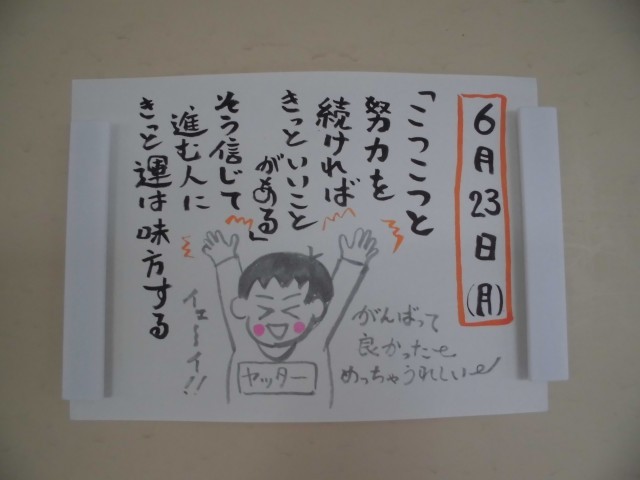 6月23日(月)
「こつこつと
努力を
続ければ
きっといいこと
がある」
そう信じて
進む人に
きっと運は味方する
がんばって
良かったぜ
めっちゃうれしいぜ
ヤッター
イェ〜イ!!